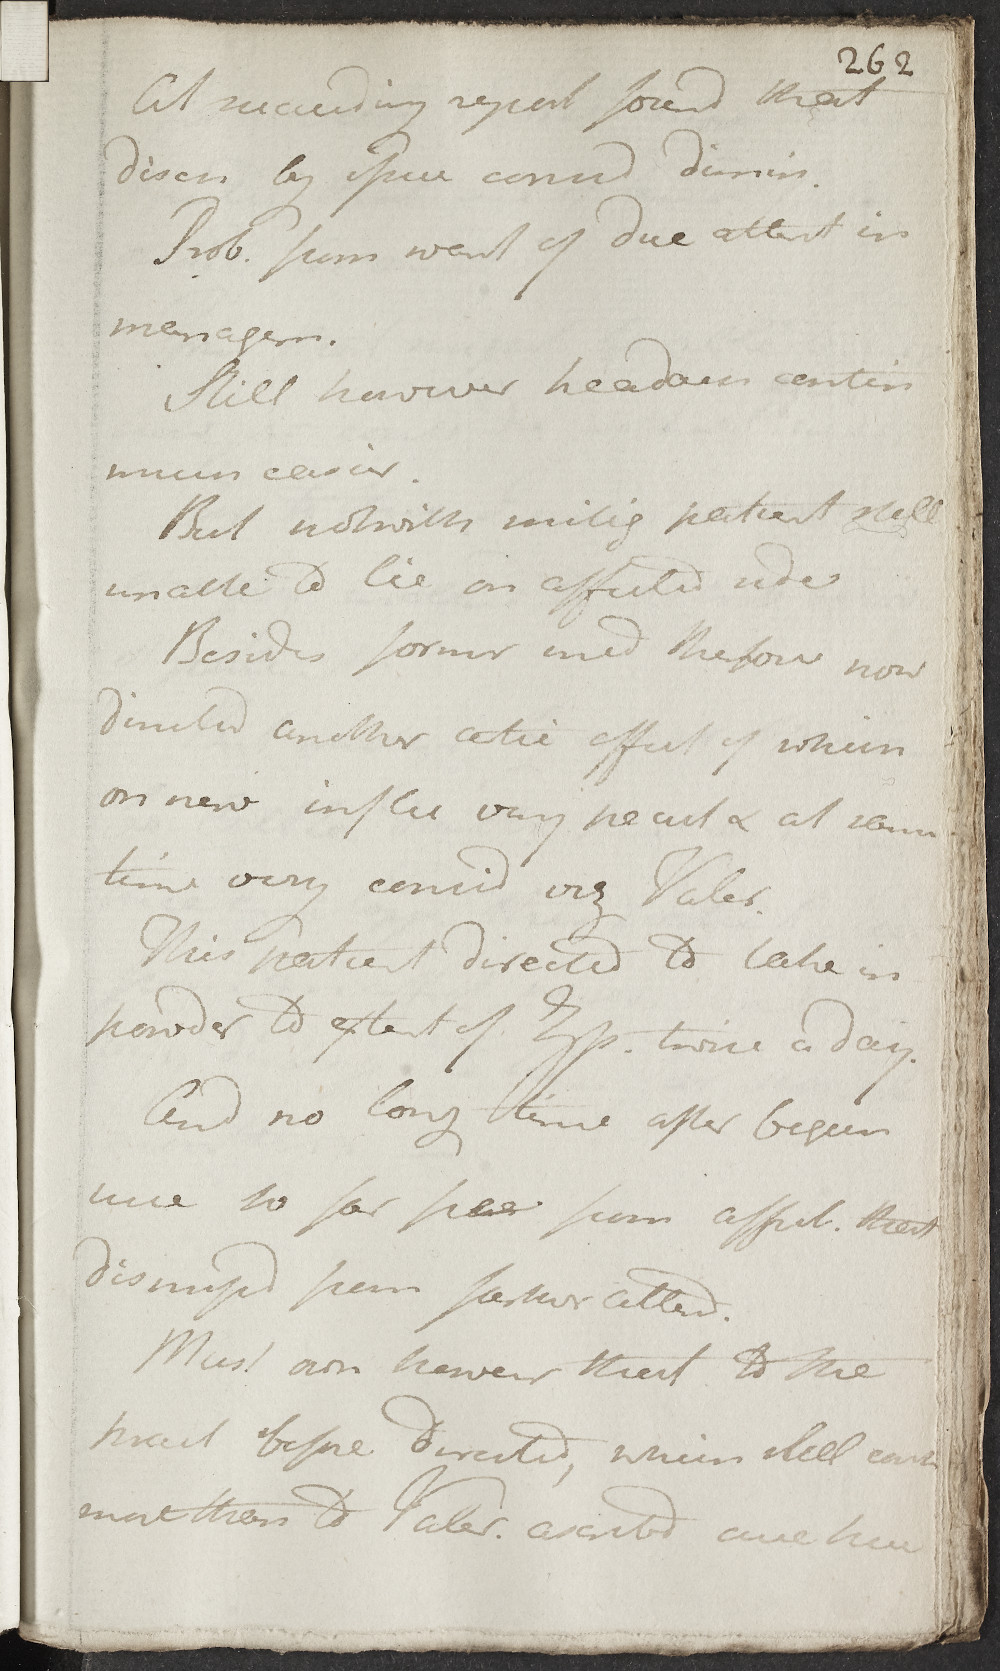 262
At succeeding report found that
disch by issue consid dimin.
Prob. from want of due attent in
managem.
Still however headach contin
much easier.
But notwith mitig patient still
unable to lie on affected side
Besides former med therefore now
directed another active effect of which
on nerv influ very peculi & at same
time very consid viz Valer.
This patient directed to take in
powder to extent of ʒſs. twice a day.
And no long time after begun
use so far free from affect. that
dismissd from farther attend.
Must own however that to the
pract before directed, which still cont
more than to Valer. ascribd cure here